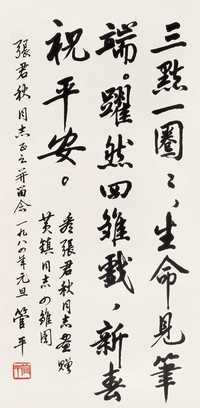 三點一圈圈，生命見筆
端。躍然四雛戲，新春
祝平安。
為張君秋同志画贈
黃鎮同志四雛图
張君秋同志正之并留念 一九八四年元旦 管平